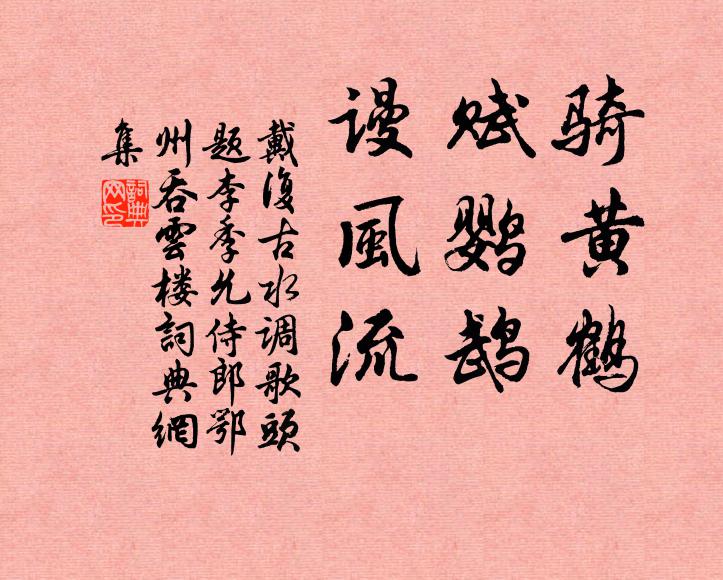 骑黄鹤
赋鹦鹉
谩風流
戴復古水调歌頭
题李季允侍郎鄂
州吞雲楼詞典網
集
詞典网印